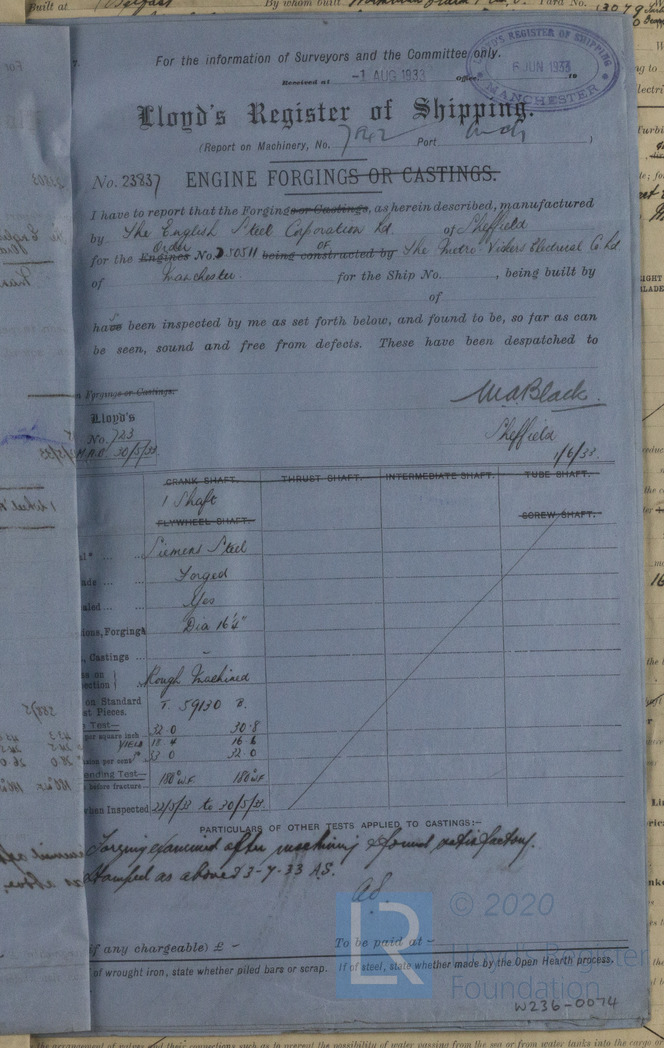 Built at Belfast By whom built Yard No. 13079
For the information of Surveyors and the Committee only.
Received at -1 AUG 1933 Office. 19
LLOYD'S REGISTER OF SHIPPING
6 JUN 1933
MANCHESTER
Lloyd's Register of Shipping.
(Report on Machinery, No. Port )
No. 23837 ENGINE FORGINGS OR CASTINGS.
I have to report that the Forgings or Castings, as herein described, manufactured
by The English Steel Corporation Ltd. of Sheffield
Order OF
for the Engines No. 50511 being constructed by The Metro Vickers Electrical Co Ltd.
of Manchester. for the Ship No. , being built by
of
have been inspected by me as set forth below, and found to be, so far as can
be seen, sound and free from defects. These have been despatched to
Forgings or Castings.
W A Black.
Lloyd's
No. 723
30/5/33
Sheffield
1/6/33.
CRANK SHAFT. THRUST SHAFT. INTERMEDIATE SHAFT. TUBE SHAFT.
1 Shaft
FLYWHEEL SHAFT. SCREW SHAFT.
Siemens Steel
Forged
Yes
ions, Forgings Dia 16¼"
Castings -
Rough Machined
on Standard
st Pieces. T. 59130 B.
Test—
per square inch 32.0 30.8
YIELD 18.4 16.8
sion per cent 33.0 32.0
ending Test— 180° U.F 180° U.F
before fracture
when Inspected 22/5/33 to 30/5/33.
PARTICULARS OF OTHER TESTS APPLIED TO CASTINGS:-
Forging examined after machining & found satisfactory.
Stamped as above 3-7-33 A.S.
if any chargeable) £ - To be paid at -
of wrought iron, state whether piled bars or scrap. If of steel, state whether made by the Open Hearth process.
LR © 2020
Lloyd's Register
Foundation
W236-0074
the arrangement of valves and their connections such as to prevent the possibility of water passing from the sea or from water tanks into the cargo or